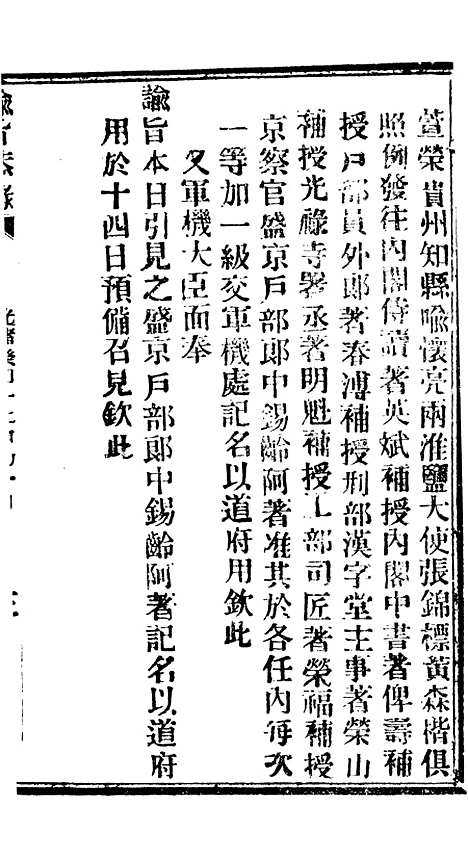 萱榮貴州知縣喻懷亮兩淮鹽大使張錦標黃森楷俱
照例發往內閣侍讀著英斌補授內閣中書著俾壽補
授戶部員外郎著春溥補授刑部漢字堂主事著榮山
補授光祿寺署丞著明魁補授工部司匠著榮福補授
京察官盛京戶部郎中錫齡阿著准其於各任內每次
一等加一級交軍機處記名以道府用欽此
又軍機大臣面奉
諭旨本日引見之盛京戶部郎中錫齡阿著記名以道府
用於十四日預備召見欽此